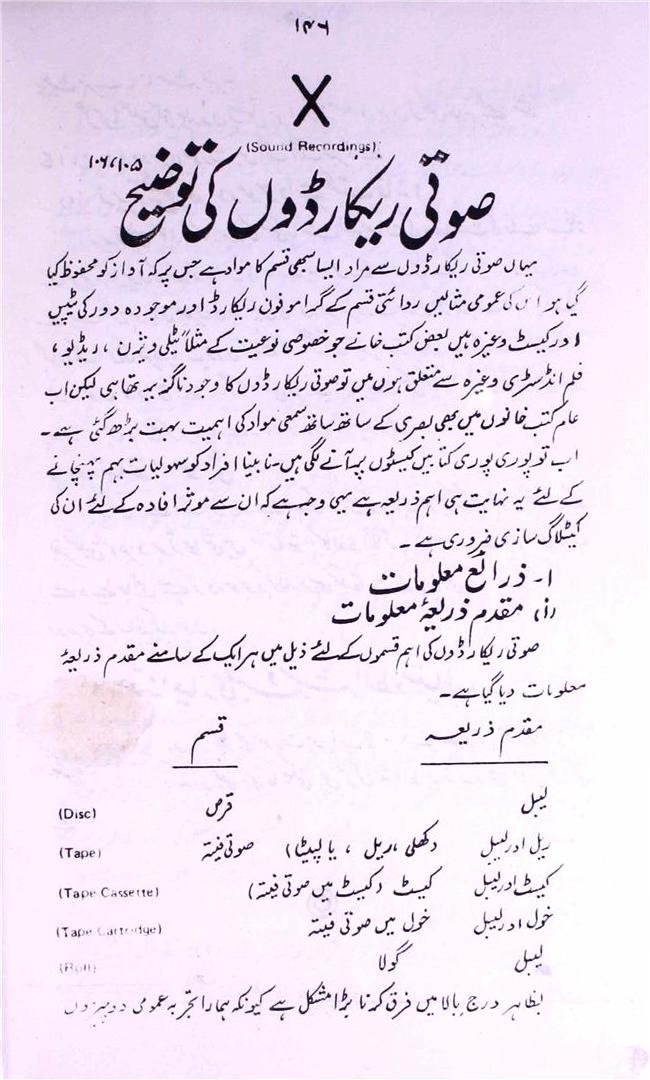 ۱۴۶
X
(Sound Recordings)
صوتی ریکارڈوں کی توضیح ۱۰۵، ۱۰۶
یہاں صوتی ریکارڈوں سے مراد ایسا سبھی قسم کا مواد ہے جس پر کہ آواز کو محفوظ کیا
گیا ہو اس کی عمومی مثالیں روائتی قسم کے گراموفون ریکارڈ اور موجودہ دور کی ٹیپیں
اور کیسٹ وغیرہ ہیں بعض کتب خانے جو خصوصی نوعیت کے مثلاً ٹیلی ویژن، ریڈیو،
فلم انڈسٹری وغیرہ سے متعلق ہوں میں تو صوتی ریکارڈوں کا وجود ناگزیر تھا ہی لیکن اب
عام کتب خانوں میں بھی بصری کے ساتھ ساتھ سمعی مواد کی اہمیت بہت بڑھ گئی ہے۔
اب تو پوری پوری کتابیں کیسٹوں پر آنے لگی ہیں۔ نابینا افراد کو سہولیات بہم پہنچانے
کے لئے یہ نہایت ہی اہم ذریعہ ہے یہی وجہ ہے کہ ان سے موثر افادہ کے لئے ان کی
کیٹلاگ سازی ضروری ہے۔
۱۔ ذرائع معلومات
(i) مقدم ذریعۂ معلومات
صوتی ریکارڈوں کی اہم قسموں کے لئے ذیل میں ہر ایک کے سامنے مقدم ذریعۂ
معلومات دیا گیا ہے۔
مقدم ذریعہ قسم
لیبل قرص (Disc)
ریل اور لیبل (کھلی ریل، یا لپیٹا) صوتی فیتہ (Tape)
کیسٹ اور لیبل کیسٹ (کیسٹ میں صوتی فیتہ) (Tape Cassette)
خول اور لیبل خول میں صوتی فیتہ (Tape Cartrodge)
لیبل گولا (Roll)
بظاہر درج بالا میں فرق کرنا بڑا مشکل ہے کیونکہ ہمارا تجربہ عمومی دو چیزوں